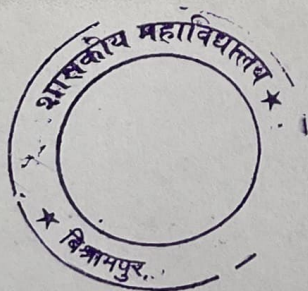 शासकीय महाविद्यालय ★
★ बिश्रामपुर